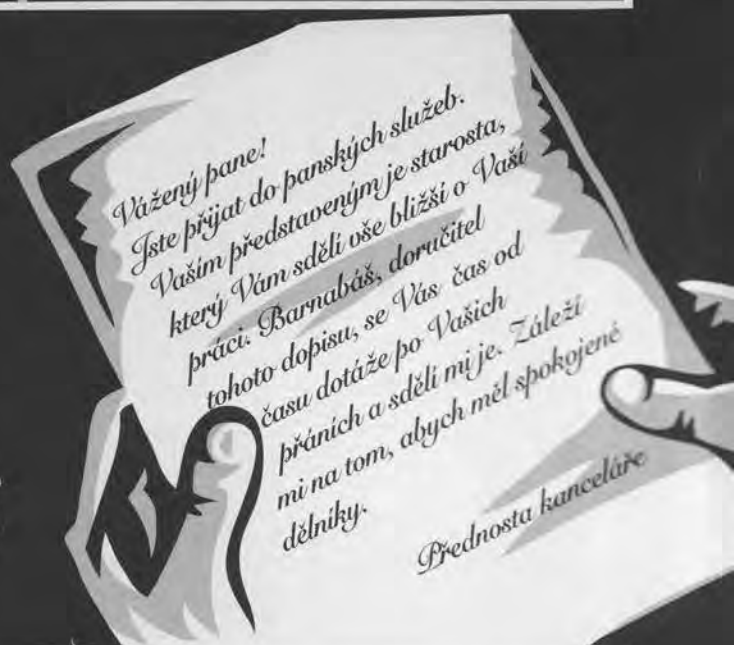 Vážený pane!
Jste přijat do panských služeb.
Vaším představeným je starosta,
který Vám sdělí vše bližší o Vaší
práci. Barnabáš, doručitel
tohoto dopisu, se Vás čas od
času dotáže po Vašich
přáních a sdělí mi je. Záleží
mi na tom, abych měl spokojené
dělníky.
Přednosta kanceláře